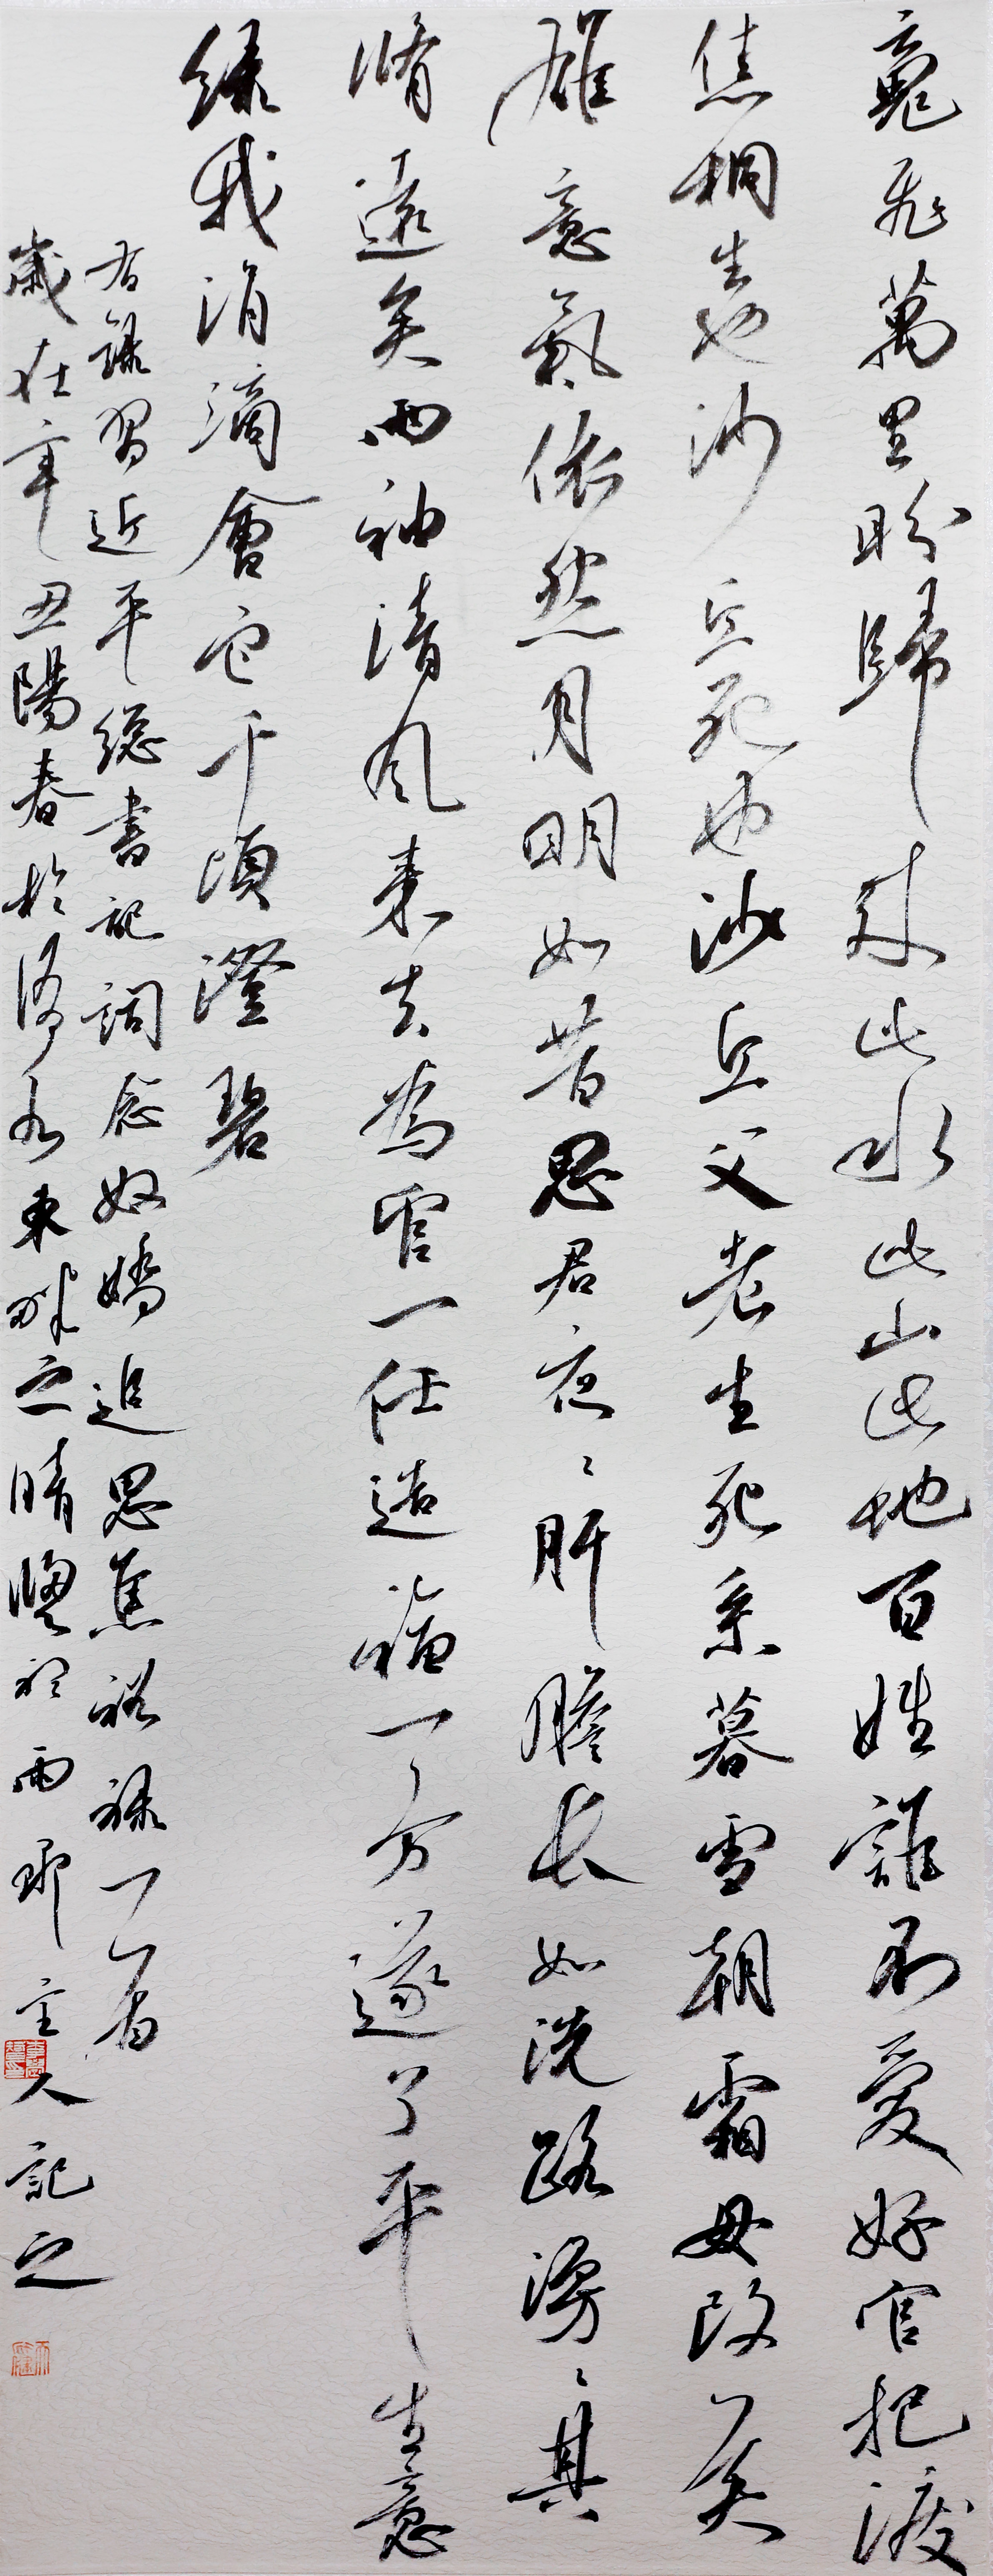 魂飛萬里盼歸來此水此山此地百姓誰不愛好官把淚
焦桐生也沙丘死也沙丘父老生死系暮雪朝霜毋改英
雄意氣依然月明如昔思君夜々肝膽長如洗路漫々其
脩遠矣兩袖清風來去為官一任造福一方遂了平生意
綠我涓滴會它千頃澄碧
右錄習近平總書記詞念奴嬌追思焦裕祿一首
歲在辛丑陽春於水東畔之晴雨主人記之